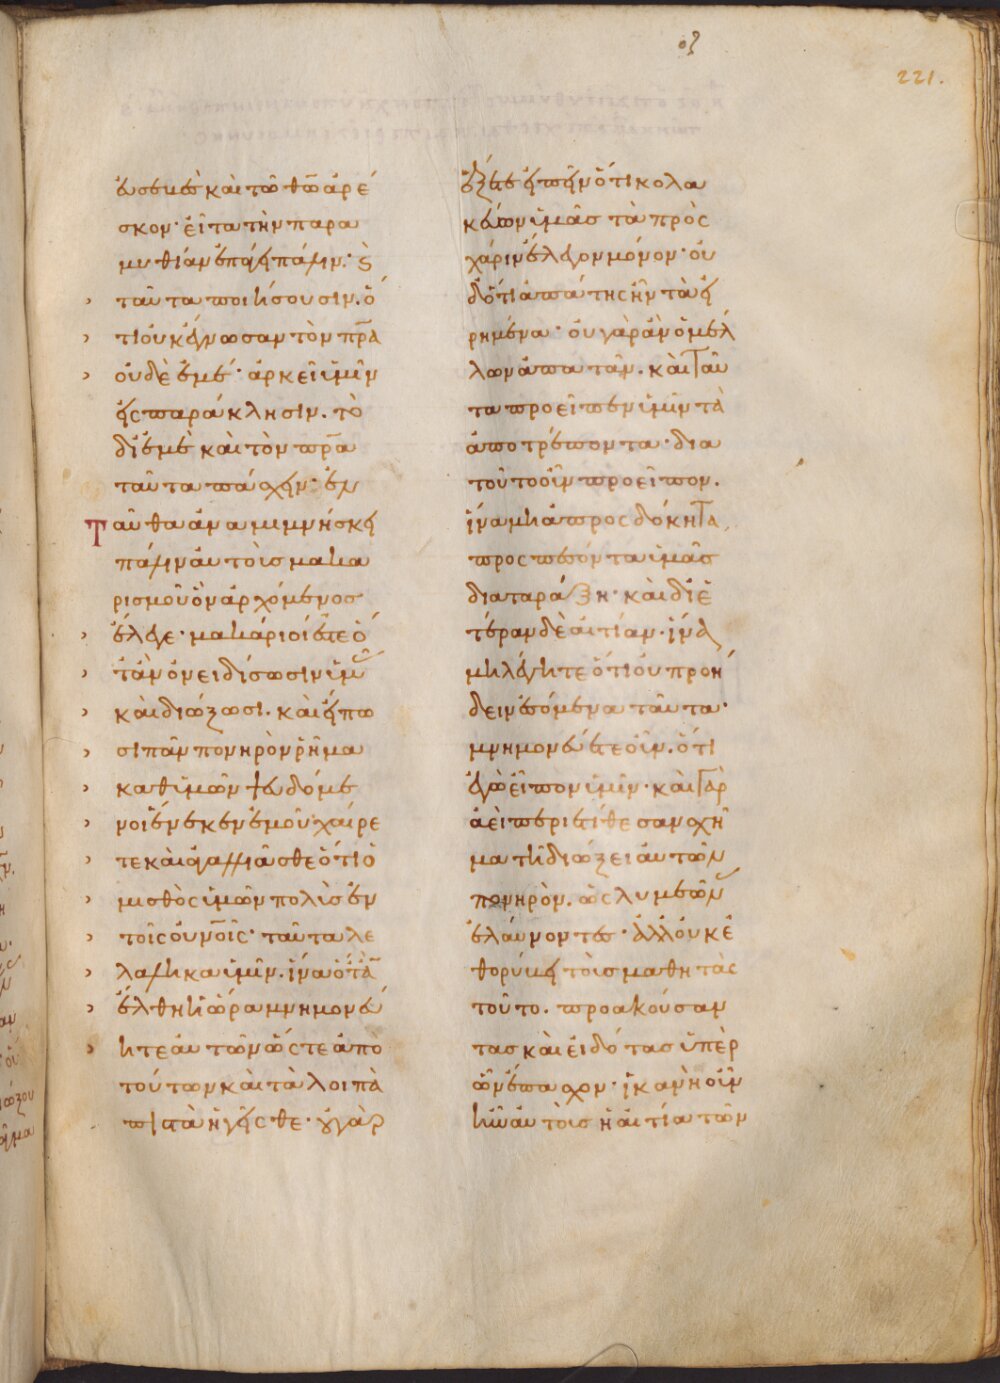 οζ
221.
εὐσεβὲς καὶ τῶ θ̅ω̅ ἀρέ
σκον· εἶτα τὴν παρα
μυθίαν ἐπάγει πάλιν· ϛ
ταῦτα ποιήσουσιν. ὅ
τι οὐκ ἔγνωσαν τὸν π̅ρ̅α
οὐδὲ ἐμέ· ἀρκεῖ ὑμῖν
εἰς παράκλησιν. τὸ
δι' ἐμὲ καὶ τὸν π̅ρ̅α
ταῦτα πάσχειν· ἐν
Ταῦθα ἀναμιμνήσκει
πάλιν αὐτοὺς μακα
ρισμοῦ ὃν ἀρχόμενος
ἔλεγε· μακάριοί ἐστε ὅ
τὰν ὀνειδίσωσιν ὑμ
καὶ διώξωσι. καὶ εἴπω
σι πᾶν πονηρὸν ῥῆμα
καθ' ὑμῶν ψευδόμε
νοι ἕνεκεν ἐμοῦ· χαίρε
τε καὶ ἀγαλλιᾶσθε ὅτι ὁ
μισθὸς ὑμῶν πολὺς ἐν
τοῖς οὐνοῖς· ταῦτα λε
λάληκα ὑμῖν. ἵνα ὅτὰ
ἔλθη ἡ ὥρα μνημονεύ
ητε αὐτῶν ὥστε ἀπὸ
τούτων καὶ τὰ λοιπὰ
πιστὰ ἡγεῖσθε· οὐ γὰρ
ἕξετε εἰπεῖν ὅτι κολα
κεύων ὑμᾶς τὰ πρὸς
χάριν ἔλεγον μόνον· οὐ
δ' ὅτι ἀπάτης ἦν τὰ εἰ
ρημένα· οὐ γὰρ ἂν ὁ μέλ
λων ἀπατᾶν. καὶ ταῦ
τα προεῖπεν ὑμῖν τὰ
ἀποτρέποντα· δια
τοῦτο οὖν προεῖπον.
ἵνα μὴ ἀπροσδόκητα
προσπεσόντα ὑμᾶς
διαταράξη· καὶ δι' ἑ
τέραν δὲ αἰτίαν. ἵνα
μὴ λέγητε ὅτι οὐ προή
δειν ἐσόμενα ταῦτα·
μνημονεύετε οὖν. ὅτι
ἐγὼ εἶπον ὑμῖν· καὶ γὰρ
ἀεὶ περιετίθεσαν σχῆ
μα τῆ διώξει αὐτῶν
πονηρὸν. ὡς λυμεῶν
ἐλαύνοντες· ἀλλ' οὐκ ἐ
θορύβει τοὺς μαθητὰς
τοῦτο. προακούσαν
τας καὶ εἰδότας ὑπὲρ
ὧν ἔπασχον· ἱκανὴ οὖν
ἦν αὐτοὺς ἡ αἰτία τῶν